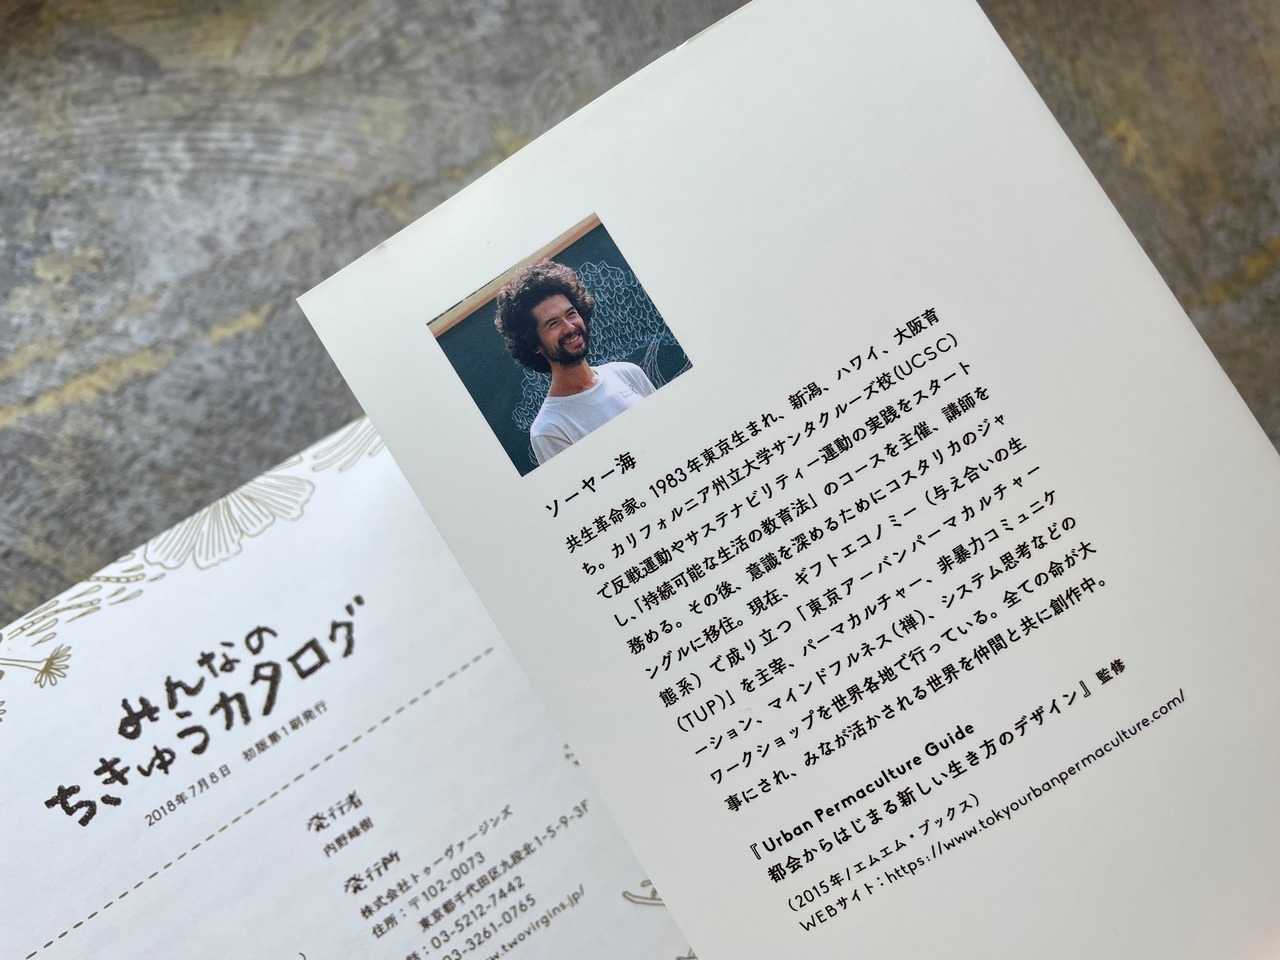 ソーヤー海
共生革命家。1983年東京生まれ、新潟、ハワイ、大阪育
ち。カリフォルニア州立大学サンタクルーズ校(UCSC)
で反戦運動やサステナビリティー運動の実践をスタート
し、「持続可能な生活の教育法」のコースを主催、講師を
務める。その後、意識を深めるためにコスタリカのジャ
ングルに移住。現在、ギフトエコノミー（与え合いの生
態系）で成り立つ「東京アーバンパーマカルチャー
(TUP)」を主宰、パーマカルチャー、非暴力コミュニケ
ーション、マインドフルネス(禅)、システム思考などの
ワークショップを世界各地で行っている。全ての命が大
事にされ、みなが活かされる世界を仲間と共に創作中。
『Urban Permaculture Guide
都会からはじまる新しい生き方のデザイン』監修
（2015年/エムエム・ブックス）
WEBサイト：https://www.tokyourbanpermaculture.com/
みんなの
ちきゅうカタログ
2018年7月8日 初版第1刷発行
発行者
内野峰樹
発行所
株式会社トゥーヴァージンズ
住所：〒102-0073
東京都千代田区九段北1-5-9-3F
：03-5212-7442
03-3261-0765
www.twovirgins.jp/